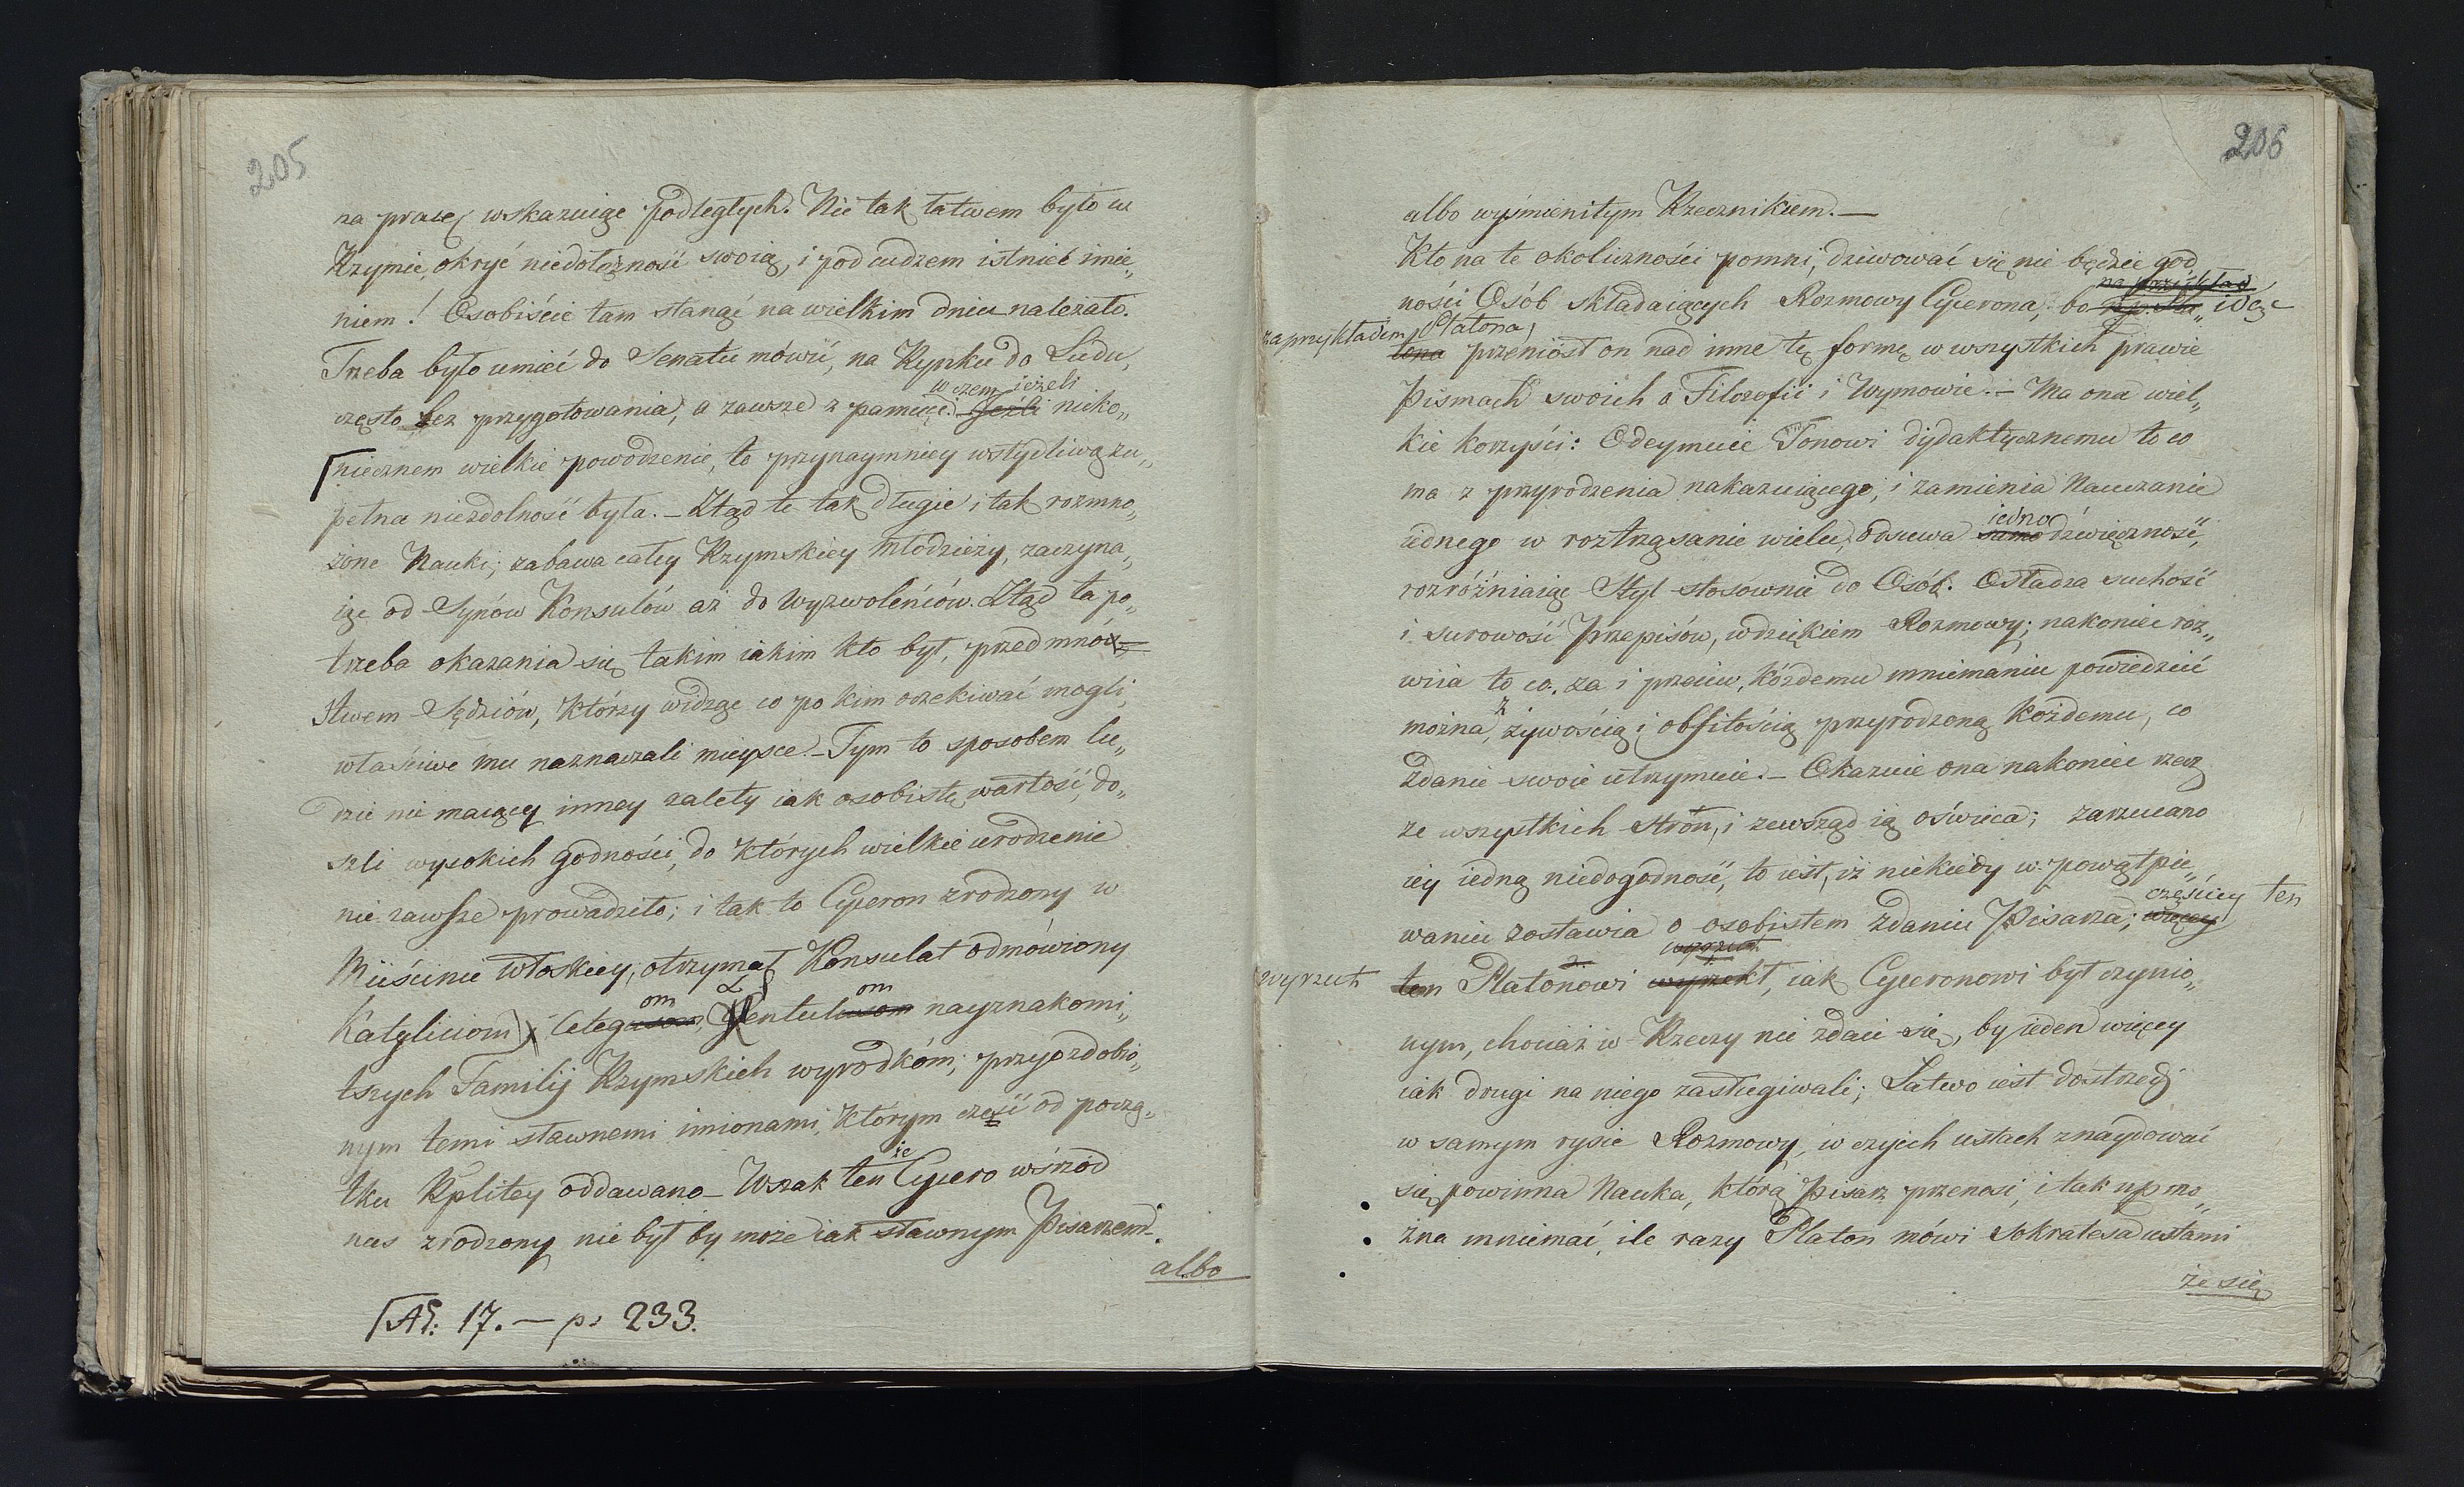 205
na pracę wskazuiąc podległych. Nie tak łatwem było w
Rzymie okryć niedołężność swoią, i pod cudzem istnieć imie„
niem! Osobiście tam stanąć na wielkim dniu należało.
Trzeba było umieć do Senatu mówić, na Rynku do Ludu,
w czem ieżeli
często bez przygotowania, a zawsze z pamięci. Jeźli nieko„
niecznem wielkie powodzenie, to przynaymniey wstydliwą zu„
pełna niezdolność była. – Ztąd te tak długie i tak rozmno„
żone Nauki; zabawa całey Rzymskiey młodzieży, zaczyna„
iąc od Synów Konsulów aż do Wyzwoleńców. Ztąd ta po„
trzeba okazania się takim iakim kto był, przed mnós„
stwem Sędziów, którzy widząc co po kim oczekiwać mogli,
właściwe mu naznaczali mieysce. – Tym to sposobem lu„
dzie nie maiący inney zalety iak osobistę wartość, do„
szli wysokich godności, do których wielkie urodzenie
nie zawsze prowadziło; i tak to Cyceron zrodzony w
Mieścinie włoskiey, otrzymał Konsulat odmówiony
om L om
Katyliciom, i Cetegusom, Lentulusom nayznakomi„
tszych Familij Rzymskich wyrodkóm; przyozdobio„
nym temi sławnemi imionami, którym cześć od począ„
tku Rplitey oddawano – Wszak ten że Cycero wśród
nas zrodzony nie był by może iak sławnym Pisarzem.
albo
AS: 17. — p. 233.
206
albo wyśmienitym Rzecznikiem. —
Kto na te okoliczności pomni, dziwować się nie będzie god
na przykład
ności Osób składaiących Rozmowy Cycerona, bo idąc
za przykładem Platona,
tona przeniósł on nad inne tę formę w wszystkich prawie
Pismach swoich o Filozofii i Wymowie. – Ma ona wiel„
kie korzyści: Odeymuie Tonowi dydaktycznemu to co
ma z przyrodzenia nakazuiącego, i zamienia Nauczanie
iedno
iednego w roztrząsanie wielu, odsuwa samo dźwięczność,
rozróżniaiąc Styl stosownie do Osób. Osładza suchość
i surowość Przepisów, wdziękiem Rozmowy; nakoniec roz„
wiia to co, za i przeciw, kóżdemu mniemaniu powiedzieć
z
można, żywością i obfitością przyrodzoną każdemu, co
Zdanie swoie utrzymuie. – Okazuie ona nakoniec rzecz
ze wszystkich stron, i zewsząd ią oświeca; zarzucano
iey iedną niedogodność, to iest, iż niekiedy w powątpie„
częściey ten
waniu zostawia o osobistem zdaniu Pisarza; więcey
wyrzut
wyrzut ten Platonowi wyrzekt, iak Cyceronowi był czynio„
nym, chociaż w Rzeczy nie zdaie się, by ieden więcey
iak drugi na niego zasługiwali; Łatwo iest dostrzedz
w samym rysie Rozmowy, w czyich ustach znaydować
się powinna Nauka, którą Pisarz przenosi, i tak np mo„
żna mniemać, ile razy Platon mówi Sokratesa ustami
że się